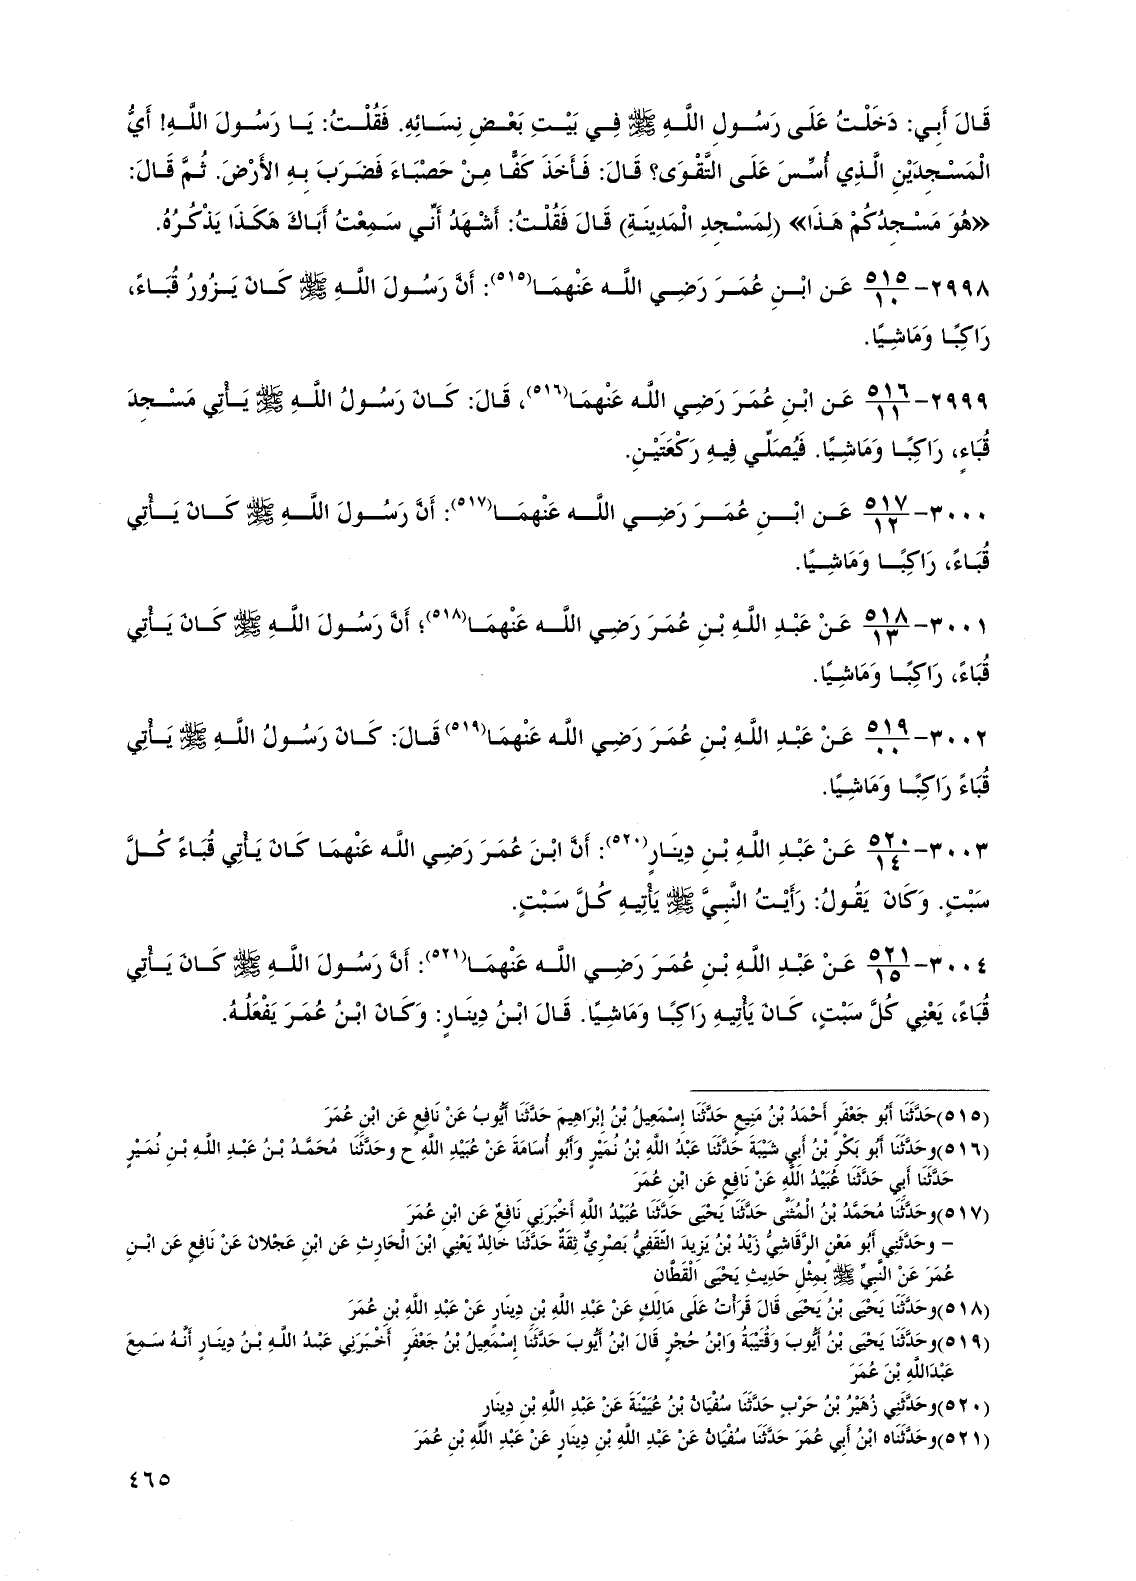 قَالَ أَبِي: دَخَلْتُ عَلَى رَسُولِ اللَّهِ ﷺ فِي بَيْتِ بَعْضِ نِسَائِهِ. فَقُلْتُ: يَا رَسُولَ اللَّهِ! أَيُّ
الْمَسْجِدَيْنِ الَّذِي أُسِّسَ عَلَى التَّقْوَى؟ قَالَ: فَأَخَذَ كَفًّا مِنْ حَصْبَاءَ فَضَرَبَ بِهِ الأَرْضَ. ثُمَّ قَالَ:
«هُوَ مَسْجِدُكُمْ هَذَا» (لِمَسْجِدِ الْمَدِينَةِ) قَالَ فَقُلْتُ: أَشْهَدُ أَنِّي سَمِعْتُ أَبَاكَ هَكَذَا يَذْكُرُهُ.
٢٩٩٨- ٥١٥/١٠ عَنِ ابْنِ عُمَرَ رَضِي اللَّه عَنْهمَا(٥١٥): أَنَّ رَسُولَ اللَّهِ ﷺ كَانَ يَزُورُ قُبَاءً،
رَاكِبًا وَمَاشِيًا.
٢٩٩٩- ٥١٦/١١ عَنِ ابْنِ عُمَرَ رَضِي اللَّه عَنْهمَا(٥١٦)، قَالَ: كَانَ رَسُولُ اللَّهِ ﷺ يَأْتِي مَسْجِدَ
قُبَاءٍ، رَاكِبًا وَمَاشِيًا. فَيُصَلِّي فِيهِ رَكْعَتَيْنِ.
٣٠٠٠- ٥١٧/١٢ عَنِ ابْنِ عُمَرَ رَضِي اللَّه عَنْهمَا(٥١٧): أَنَّ رَسُولَ اللَّهِ ﷺ كَانَ يَأْتِي
قُبَاءً، رَاكِبًا وَمَاشِيًا.
٣٠٠١- ٥١٨/١٣ عَنْ عَبْدِ اللَّهِ بْنِ عُمَرَ رَضِي اللَّه عَنْهمَا(٥١٨)؛ أَنَّ رَسُولَ اللَّهِ ﷺ كَانَ يَأْتِي
قُبَاءً، رَاكِبًا وَمَاشِيًا.
٣٠٠٢- ٥١٩/٠٠ عَنْ عَبْدِ اللَّهِ بْنِ عُمَرَ رَضِي اللَّه عَنْهمَا(٥١٩) قَالَ: كَانَ رَسُولُ اللَّهِ ﷺ يَأْتِي
قُبَاءً رَاكِبًا وَمَاشِيًا.
٣٠٠٣- ٥٢٠/١٤ عَنْ عَبْدِ اللَّهِ بْنِ دِينَارٍ(٥٢٠): أَنَّ ابْنَ عُمَرَ رَضِي اللَّه عَنْهمَا كَانَ يَأْتِي قُبَاءً كُلَّ
سَبْتٍ. وَكَانَ يَقُولُ: رَأَيْتُ النَّبِيَّ ﷺ يَأْتِيهِ كُلَّ سَبْتٍ.
٣٠٠٤- ٥٢١/١٥ عَنْ عَبْدِ اللَّهِ بْنِ عُمَرَ رَضِي اللَّه عَنْهمَا(٥٢١): أَنَّ رَسُولَ اللَّهِ ﷺ كَانَ يَأْتِي
قُبَاءً، يَعْنِي كُلَّ سَبْتٍ، كَانَ يَأْتِيهِ رَاكِبًا وَمَاشِيًا. قَالَ ابْنُ دِينَارٍ: وَكَانَ ابْنُ عُمَرَ يَفْعَلُهُ.
(٥١٥)حَدَّثَنَا أَبُو جَعْفَرٍ أَحْمَدُ بْنُ مَنِيعٍ حَدَّثَنَا إِسْمَعِيلُ بْنُ إِبْرَاهِيمَ حَدَّثَنَا أَيُّوبُ عَنْ نَافِعٍ عَنِ ابْنِ عُمَرَ
(٥١٦)وحَدَّثَنَا أَبُو بَكْرِ بْنُ أَبِي شَيْبَةَ حَدَّثَنَا عَبْدُ اللَّهِ بْنُ نُمَيْرٍ وَأَبُو أُسَامَةَ عَنْ عُبَيْدِ اللَّهِ ح وحَدَّثَنَا مُحَمَّدُ بْنُ عَبْدِ اللَّهِ بْنِ نُمَيْرٍ
حَدَّثَنَا أَبِي حَدَّثَنَا عُبَيْدُ اللَّهِ عَنْ نَافِعٍ عَنِ ابْنِ عُمَرَ
(٥١٧)وحَدَّثَنَا مُحَمَّدُ بْنُ الْمُثَنَّى حَدَّثَنَا يَحْيَى حَدَّثَنَا عُبَيْدُ اللَّهِ أَخْبَرَنِي نَافِعٌ عَنِ ابْنِ عُمَرَ
– وحَدَّثَنِي أَبُو مَعْنٍ الرَّقَاشِيُّ زَيْدُ بْنُ يَزِيدَ الثَّقَفِيُّ بَصْرِيٌّ ثِقَةٌ حَدَّثَنَا خَالِدٌ يَعْنِي ابْنَ الْحَارِثِ عَنِ ابْنِ عَجْلَانَ عَنْ نَافِعٍ عَنِ ابْنِ
عُمَرَ عَنْ النَّبِيِّ ﷺ بِمِثْلِ حَدِيثِ يَحْيَى الْقَطَّانِ
(٥١٨)وحَدَّثَنَا يَحْيَى بْنُ يَحْيَى قَالَ قَرَأْتُ عَلَى مَالِكٍ عَنْ عَبْدِ اللَّهِ بْنِ دِينَارٍ عَنْ عَبْدِ اللَّهِ بْنِ عُمَرَ
(٥١٩)وحَدَّثَنَا يَحْيَى بْنُ أَيُّوبَ وَقُتَيْبَةُ وَابْنُ حُجْرٍ قَالَ ابْنُ أَيُّوبَ حَدَّثَنَا إِسْمَعِيلُ بْنُ جَعْفَرٍ أَخْبَرَنِي عَبْدُ اللَّهِ بْنُ دِينَارٍ أَنَّهُ سَمِعَ
عَبْدَاللَّهِ بْنَ عُمَرَ
(٥٢٠)وحَدَّثَنِي زُهَيْرُ بْنُ حَرْبٍ حَدَّثَنَا سُفْيَانُ بْنُ عُيَيْنَةَ عَنْ عَبْدِ اللَّهِ بْنِ دِينَارٍ
(٥٢١)وحَدَّثَنَاه ابْنُ أَبِي عُمَرَ حَدَّثَنَا سُفْيَانُ عَنْ عَبْدِ اللَّهِ بْنِ دِينَارٍ عَنْ عَبْدِ اللَّهِ بْنِ عُمَرَ
٤٦٥